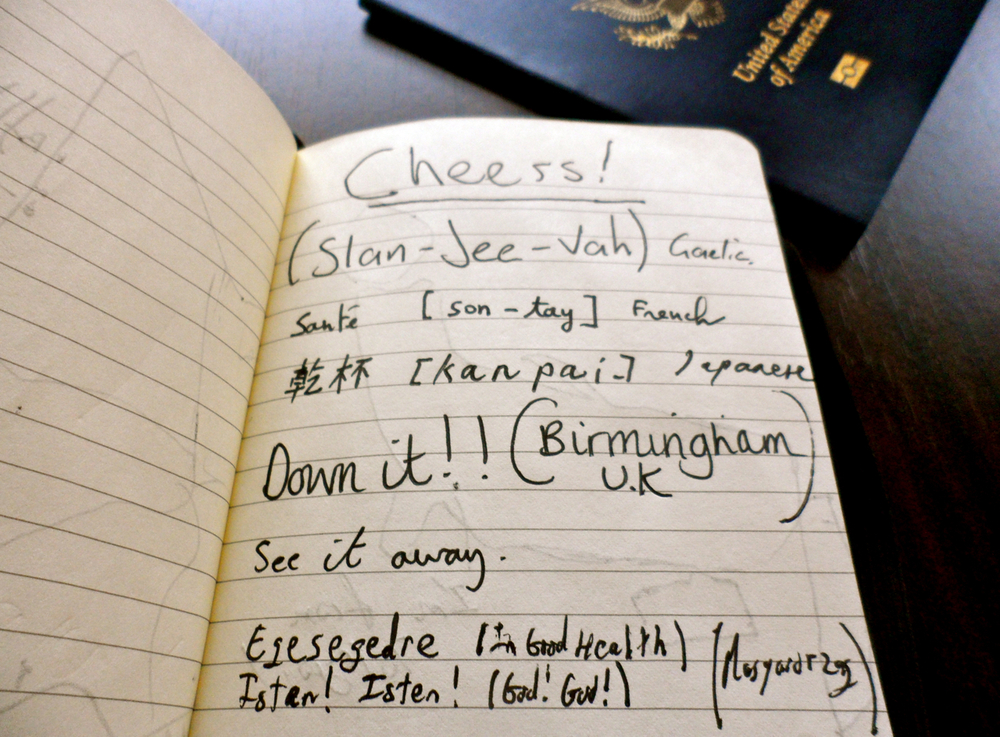 United States
of America
Cheers!
(Slan-Jee-Vah) Gaelic.
Santé [son-tay] French
乾杯 [kanpai] Japanese
Down it!! (Birmingham
U.K)
See it away.
Egesegedre (In Good Health)
Isten! Isten! (God! God!)